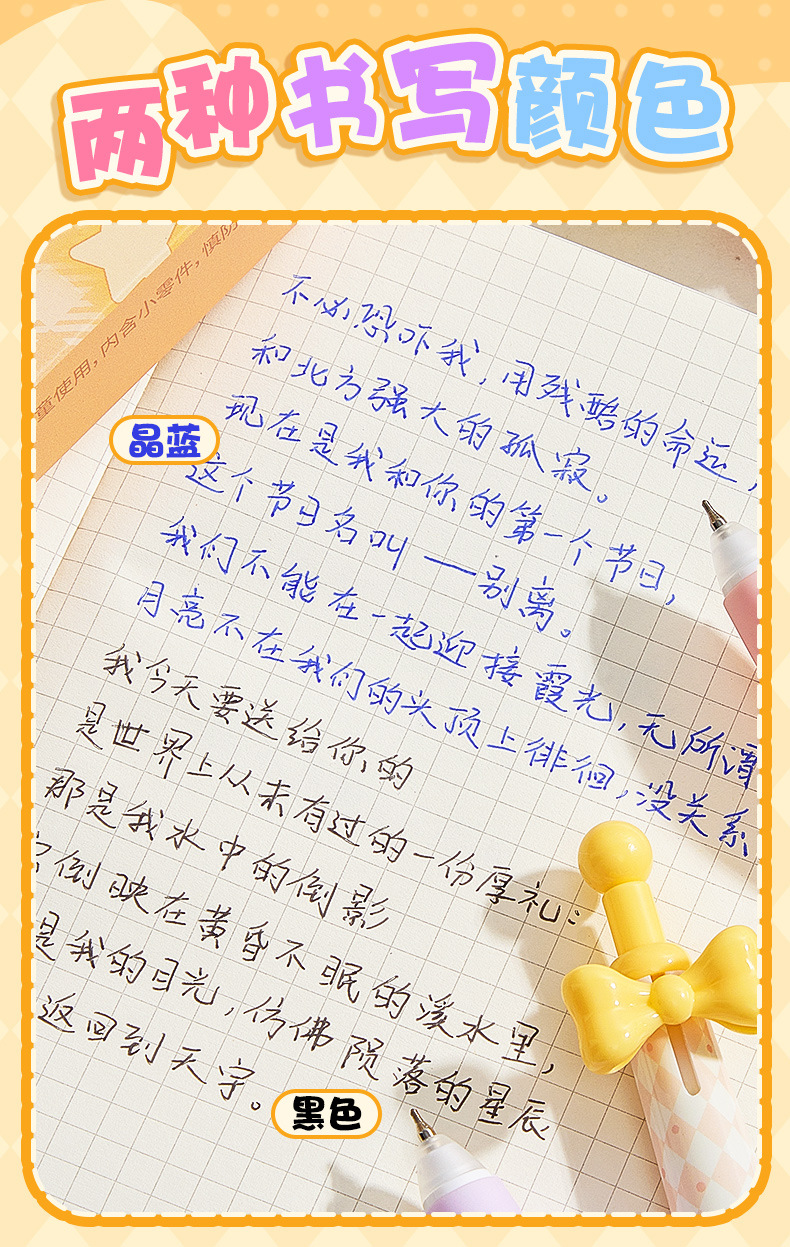 两种书写颜色
童使用,内含小零件,慎防
不必恐吓我,用残酷的命运,
和北方强大的孤寂。
晶蓝
现在是我和你的第一个节日,
这个节日名叫——别离。
我们不能在一起迎接霞光,无所谓
月亮不在我们的头顶上徘徊,没关系
我今天要送给你的
是世界上从未有过的一份厚礼:
那是我水中的倒影
倒映在黄昏不眠的溪水里,
是我的目光,仿佛陨落的星辰
返回到天宇。
黑色